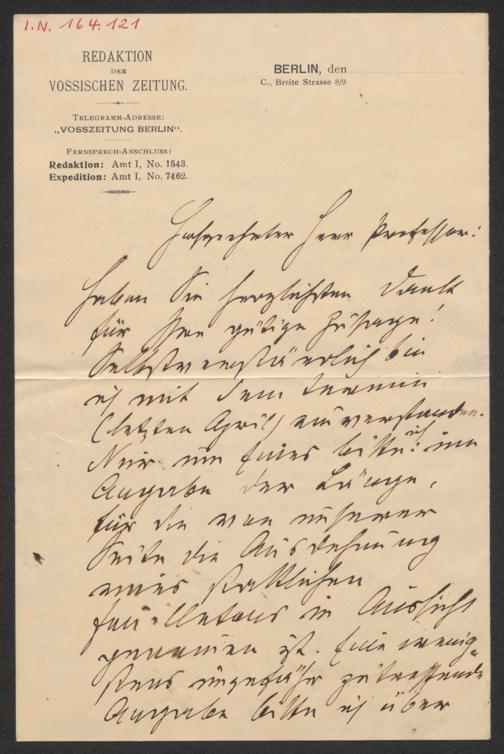 I.N. 164.121
REDAKTION
DER
VOSSISCHEN ZEITUNG.
TELEGRAMM-ADRESSE:
„VOSSZEITUNG BERLIN“.
FERNSPRECH-ANSCHLUSS:
Redaktion: Amt I, No. 1543.
Expedition: Amt I, No. 7462.
BERLIN, den
C., Breite Strasse 8/9.
Hochgeehrter Herr Professor:
Haben Sie herzlichsten Dank
für Ihre gütige Zusage!
Selbstverständlich bin
ich mit dem Termin
(letzten April) einverstanden.
Nur um Eines bitte ich: um
Angabe der Länge,
für die von unserer
Seite die Ausdehnung
eines stattlichen
Feuilletons in Aussicht
genommen ist. Eine wenig-
stens ungefähr zutreffende
Angabe bitte ich über